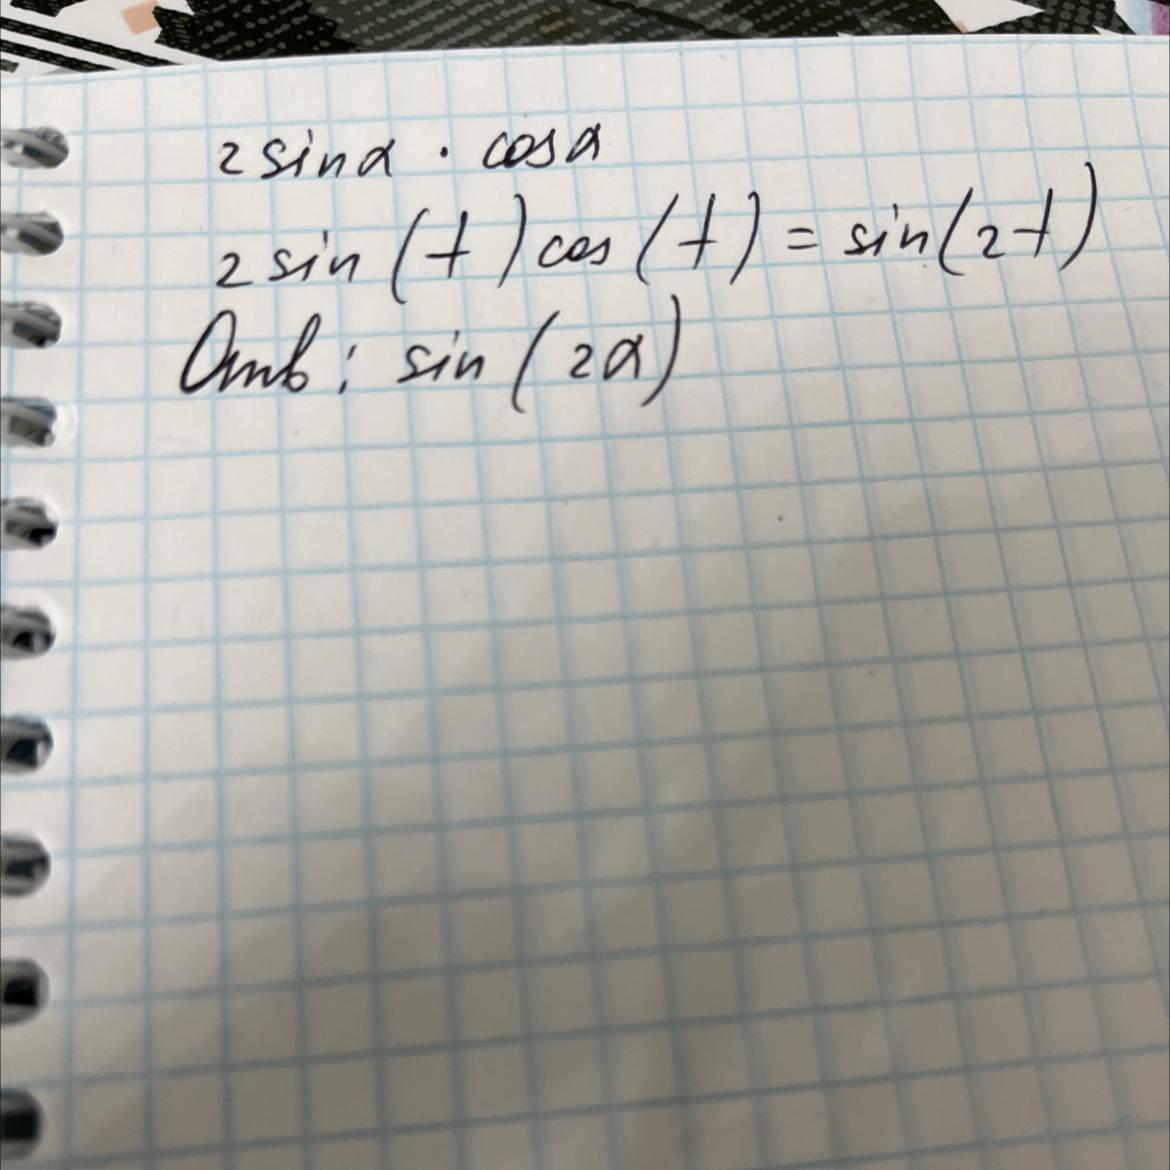 2 sin α · cos α
2 sin (t) cos (t) = sin (2t)
Отв: sin (2α)